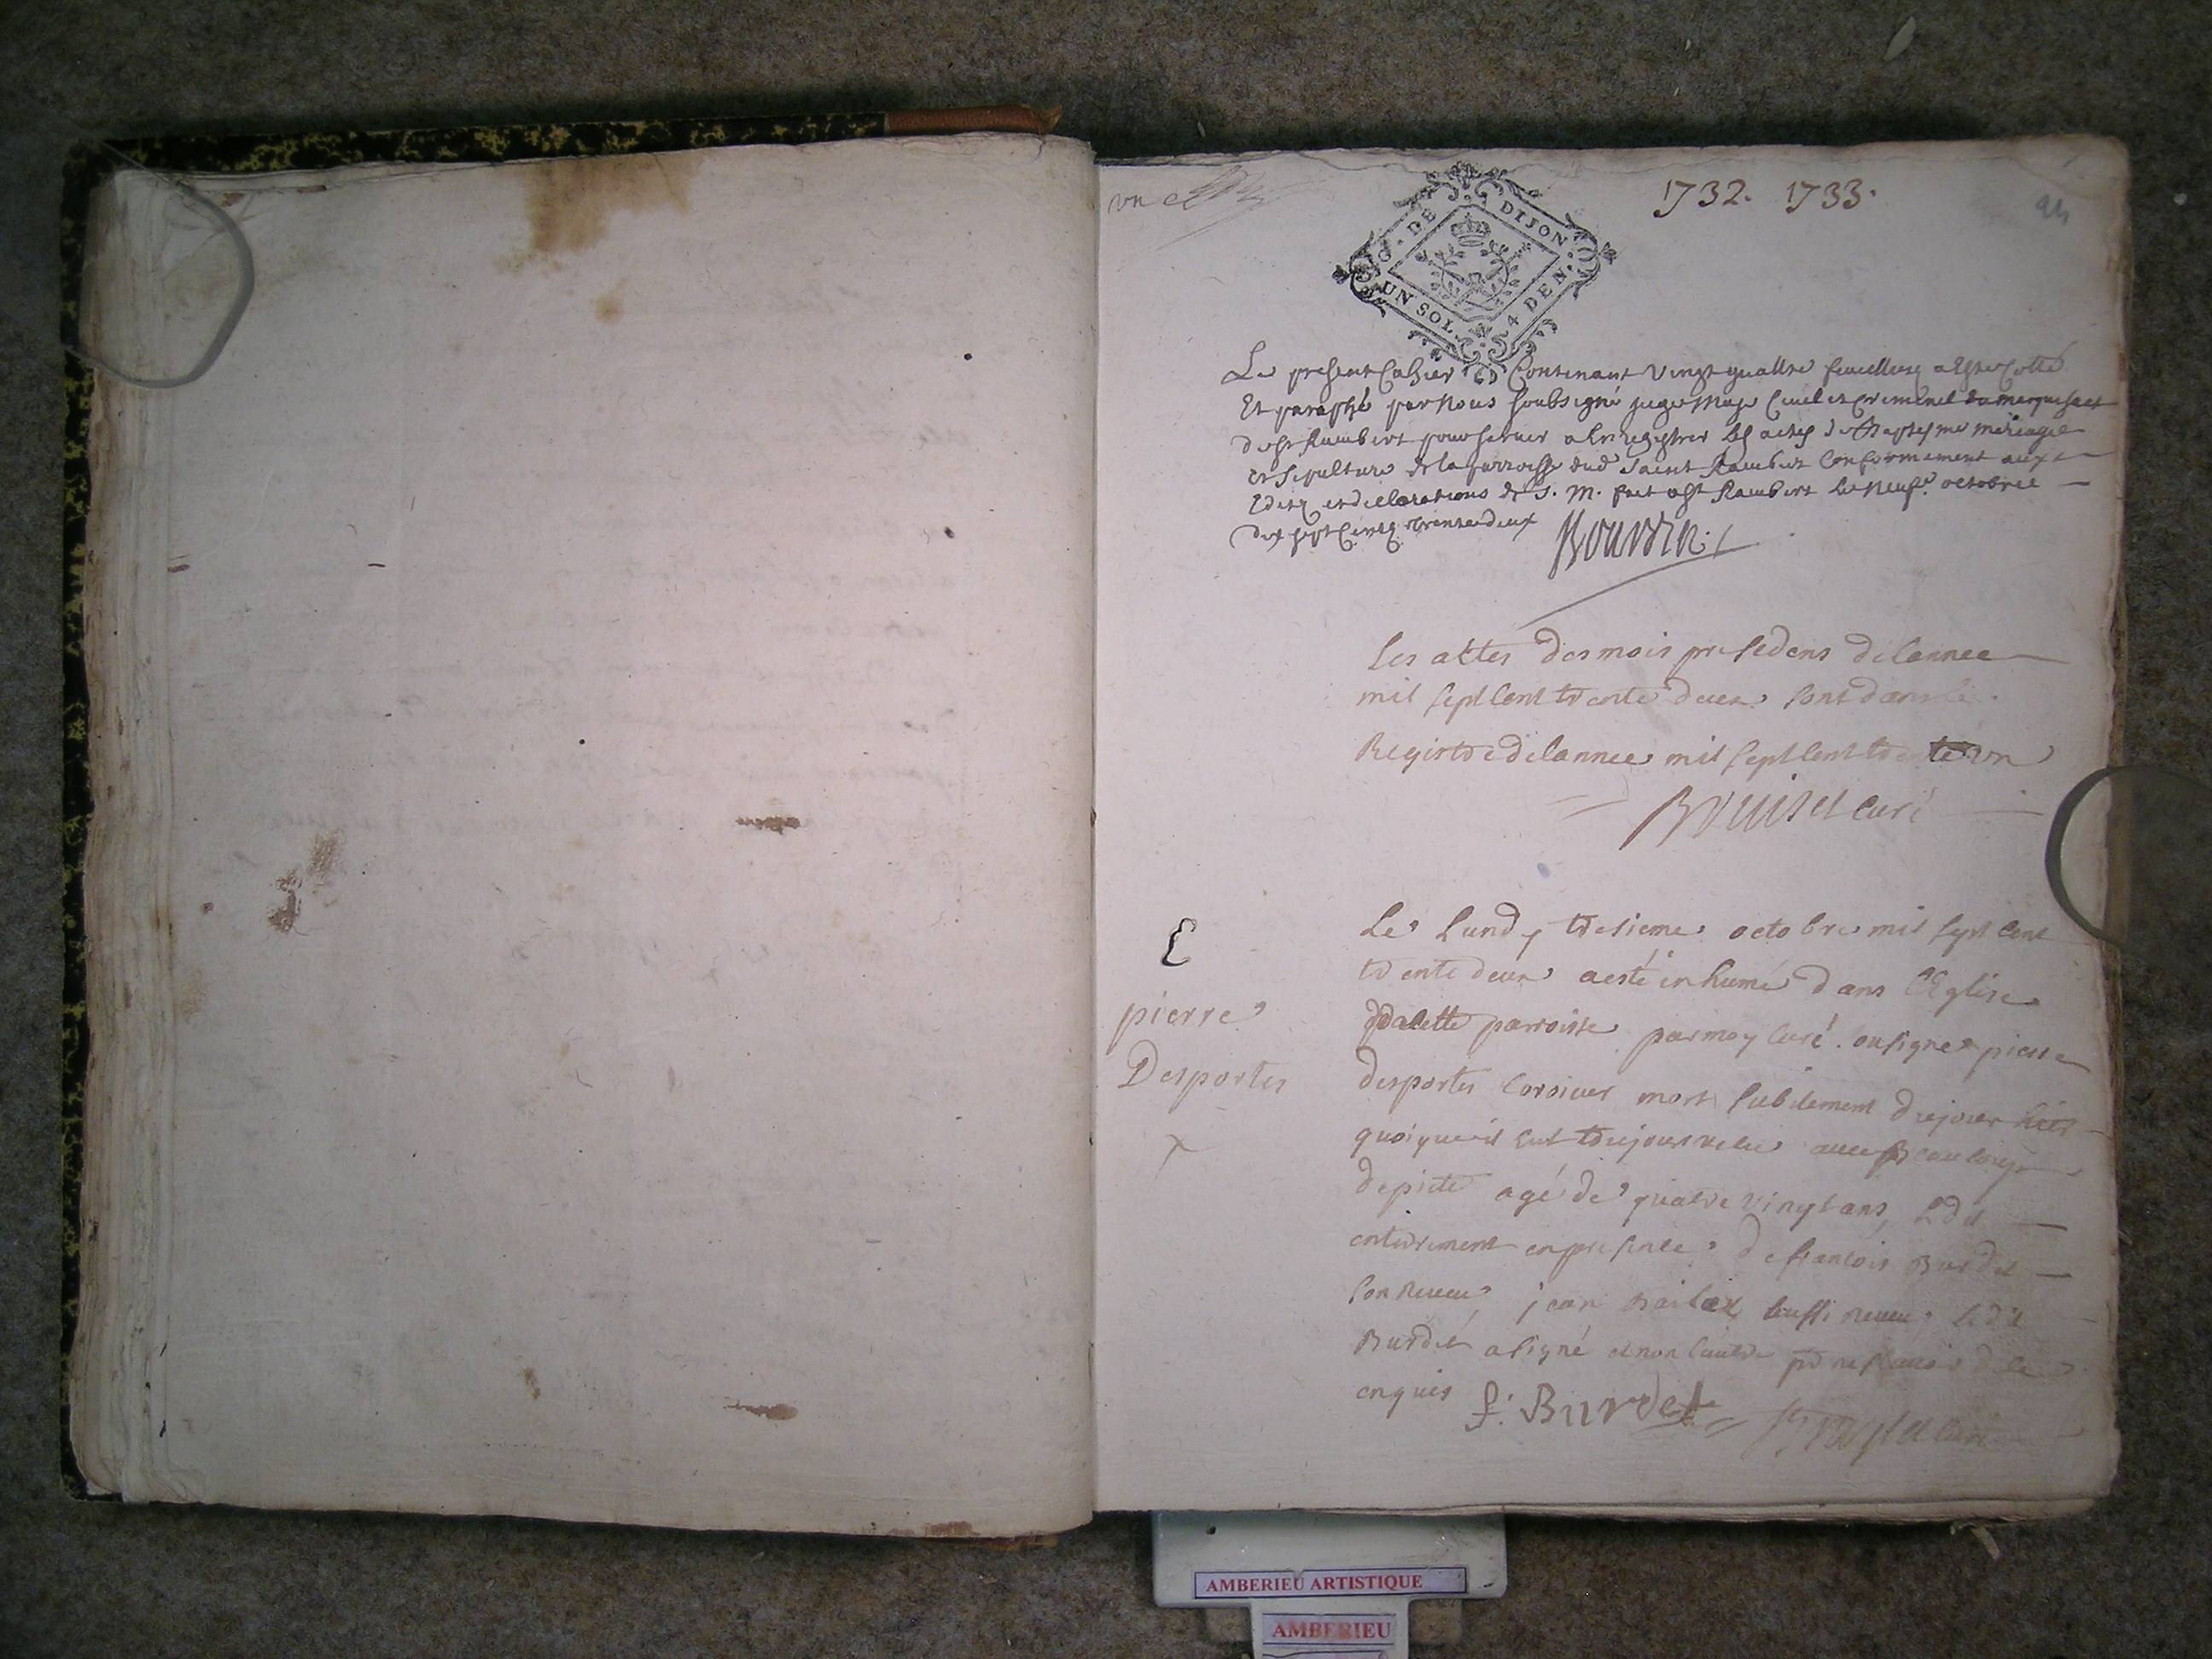 un
1732. 1733.
G. DE DIJON
UN SOL 4 DEN.
Le present Cahier Contenant Vingt quattre feuilletz a esté Cotté
Et paraphé par Nous soubsigné juge Maje Civil et Criminel du marquisat
de st Rambert pour servir a Enregistrer les actes de Baptesme mariage
et sepulture de la parroisse dud saint Rambert Conformement aux
Editz et declarations de S. M. fait a st Rambert le neufe octobre
dix sept Centz trente deux
Les aktes des mois presedens de lannee
mil sept cent trente deux sont dans le
Registre de lannee mil sept cent trente un
curé
E
pierre
Desportes
Le Lundy tresieme octobre mil sept cent
trente deux a esté inhumé dans l'Eglise
de cette parroisse par moy curé souligné pierre
desportes mort subitement
quoique il eut toujours vecu avec beaucoup
de pieté agé de quatre vingt ans, Ledit
enterrement en presence de francois Burdet
son neveu jean aussi neveu ledit
Burdet a signé et non l'autre pr ne savoir de ce
enquis f. Burdet
curé
AMBERIEU ARTISTIQUE
AMBERIEU